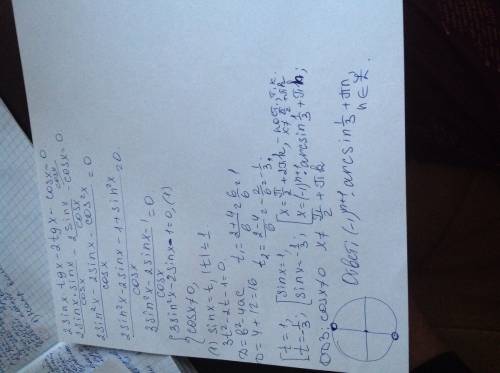 2sinx·tgx - 2tgx - cosx = 0
2sinx·sinx/cosx - 2sinx/cosx - cosx = 0
(2sin²x - 2sinx - cos²x)/cosx = 0
(2sin²x - 2sinx - 1 + sin²x)/cosx = 0.
(3sin²x - 2sinx - 1)/cosx = 0.
{3sin²x - 2sinx - 1 = 0, (1)
{cosx ≠ 0,
(1) sinx = t, |t| ≤ 1
3t² - 2t - 1 = 0.
D = b² - 4ac
D = 4 + 12 = 16
t₁ = (2+4)/6 = 6/6 = 1
t₂ = (2-4)/6 = -2/6 = -1/3.
[t = 1, [sinx = 1, [x = π/2 + 2πk, - пост, т.к. x ≠ π/2 + πk
[t = -1/3; [sinx = -1/3; [x = (-1)ⁿ⁺¹ arcsin 1/3 + πn;
ОДЗ: cosx ≠ 0 x ≠ π/2 + πk
Ответ: (-1)ⁿ⁺¹ arcsin 1/3 + πn,
n ∈ Z.